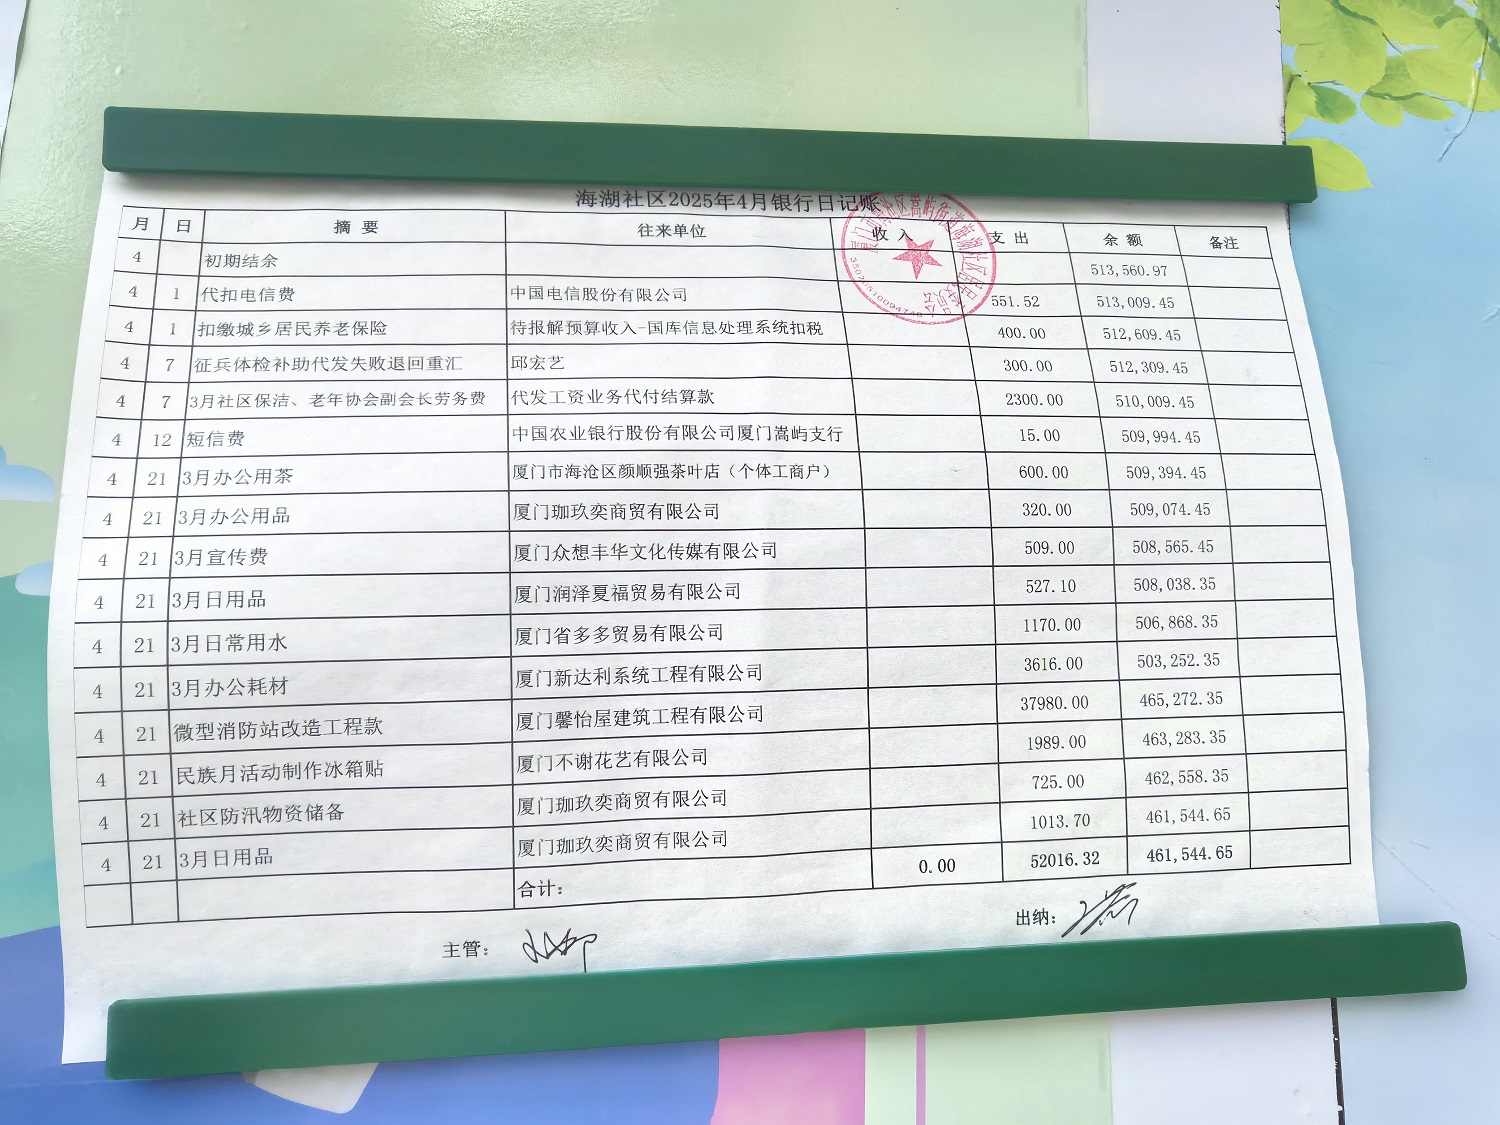 海湖社区2025年4月银行日记账
月 日 摘要 往来单位 收入 支出 余额 备注
4 初期结余 513,560.97
4 1 代扣电信费 中国电信股份有限公司 551.52 513,009.45
4 1 扣缴城乡居民养老保险 待报解预算收入-国库信息处理系统扣税 400.00 512,609.45
4 7 征兵体检补助代发失败退回重汇 邱宏艺 300.00 512,309.45
4 7 3月社区保洁、老年协会副会长劳务费 代发工资业务代付结算款 2300.00 510,009.45
4 12 短信费 中国农业银行股份有限公司厦门嵩屿支行 15.00 509,994.45
4 21 3月办公用茶 厦门市海沧区颜顺强茶叶店（个体工商户） 600.00 509,394.45
4 21 3月办公用品 厦门珈玖奕商贸有限公司 320.00 509,074.45
4 21 3月宣传费 厦门众想丰华文化传媒有限公司 509.00 508,565.45
4 21 3月日用品 厦门润泽夏福贸易有限公司 527.10 508,038.35
4 21 3月日常用水 厦门省多多贸易有限公司 1170.00 506,868.35
4 21 3月办公耗材 厦门新达利系统工程有限公司 3616.00 503,252.35
4 21 微型消防站改造工程款 厦门馨怡屋建筑工程有限公司 37980.00 465,272.35
4 21 民族月活动制作冰箱贴 厦门不谢花艺有限公司 1989.00 463,283.35
4 21 社区防汛物资储备 厦门珈玖奕商贸有限公司 725.00 462,558.35
4 21 3月日用品 厦门珈玖奕商贸有限公司 1013.70 461,544.65
合计： 0.00 52016.32 461,544.65
主管：
出纳：